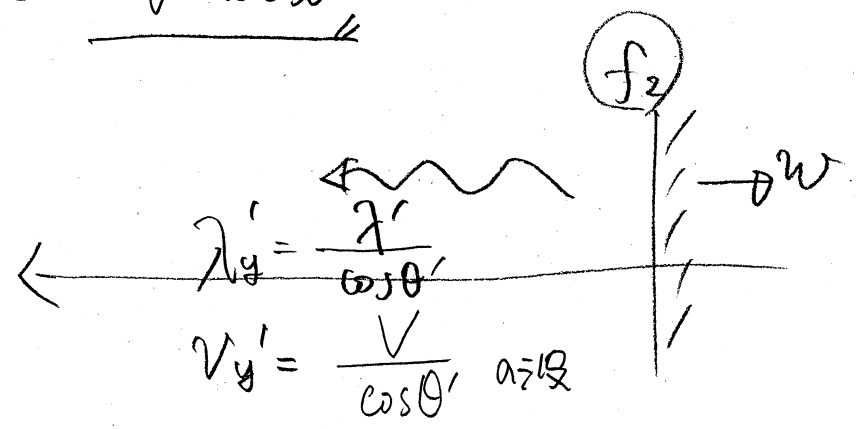 f₂
w
λy' = λ' / cosθ'
Vy' = V / cosθ' の波